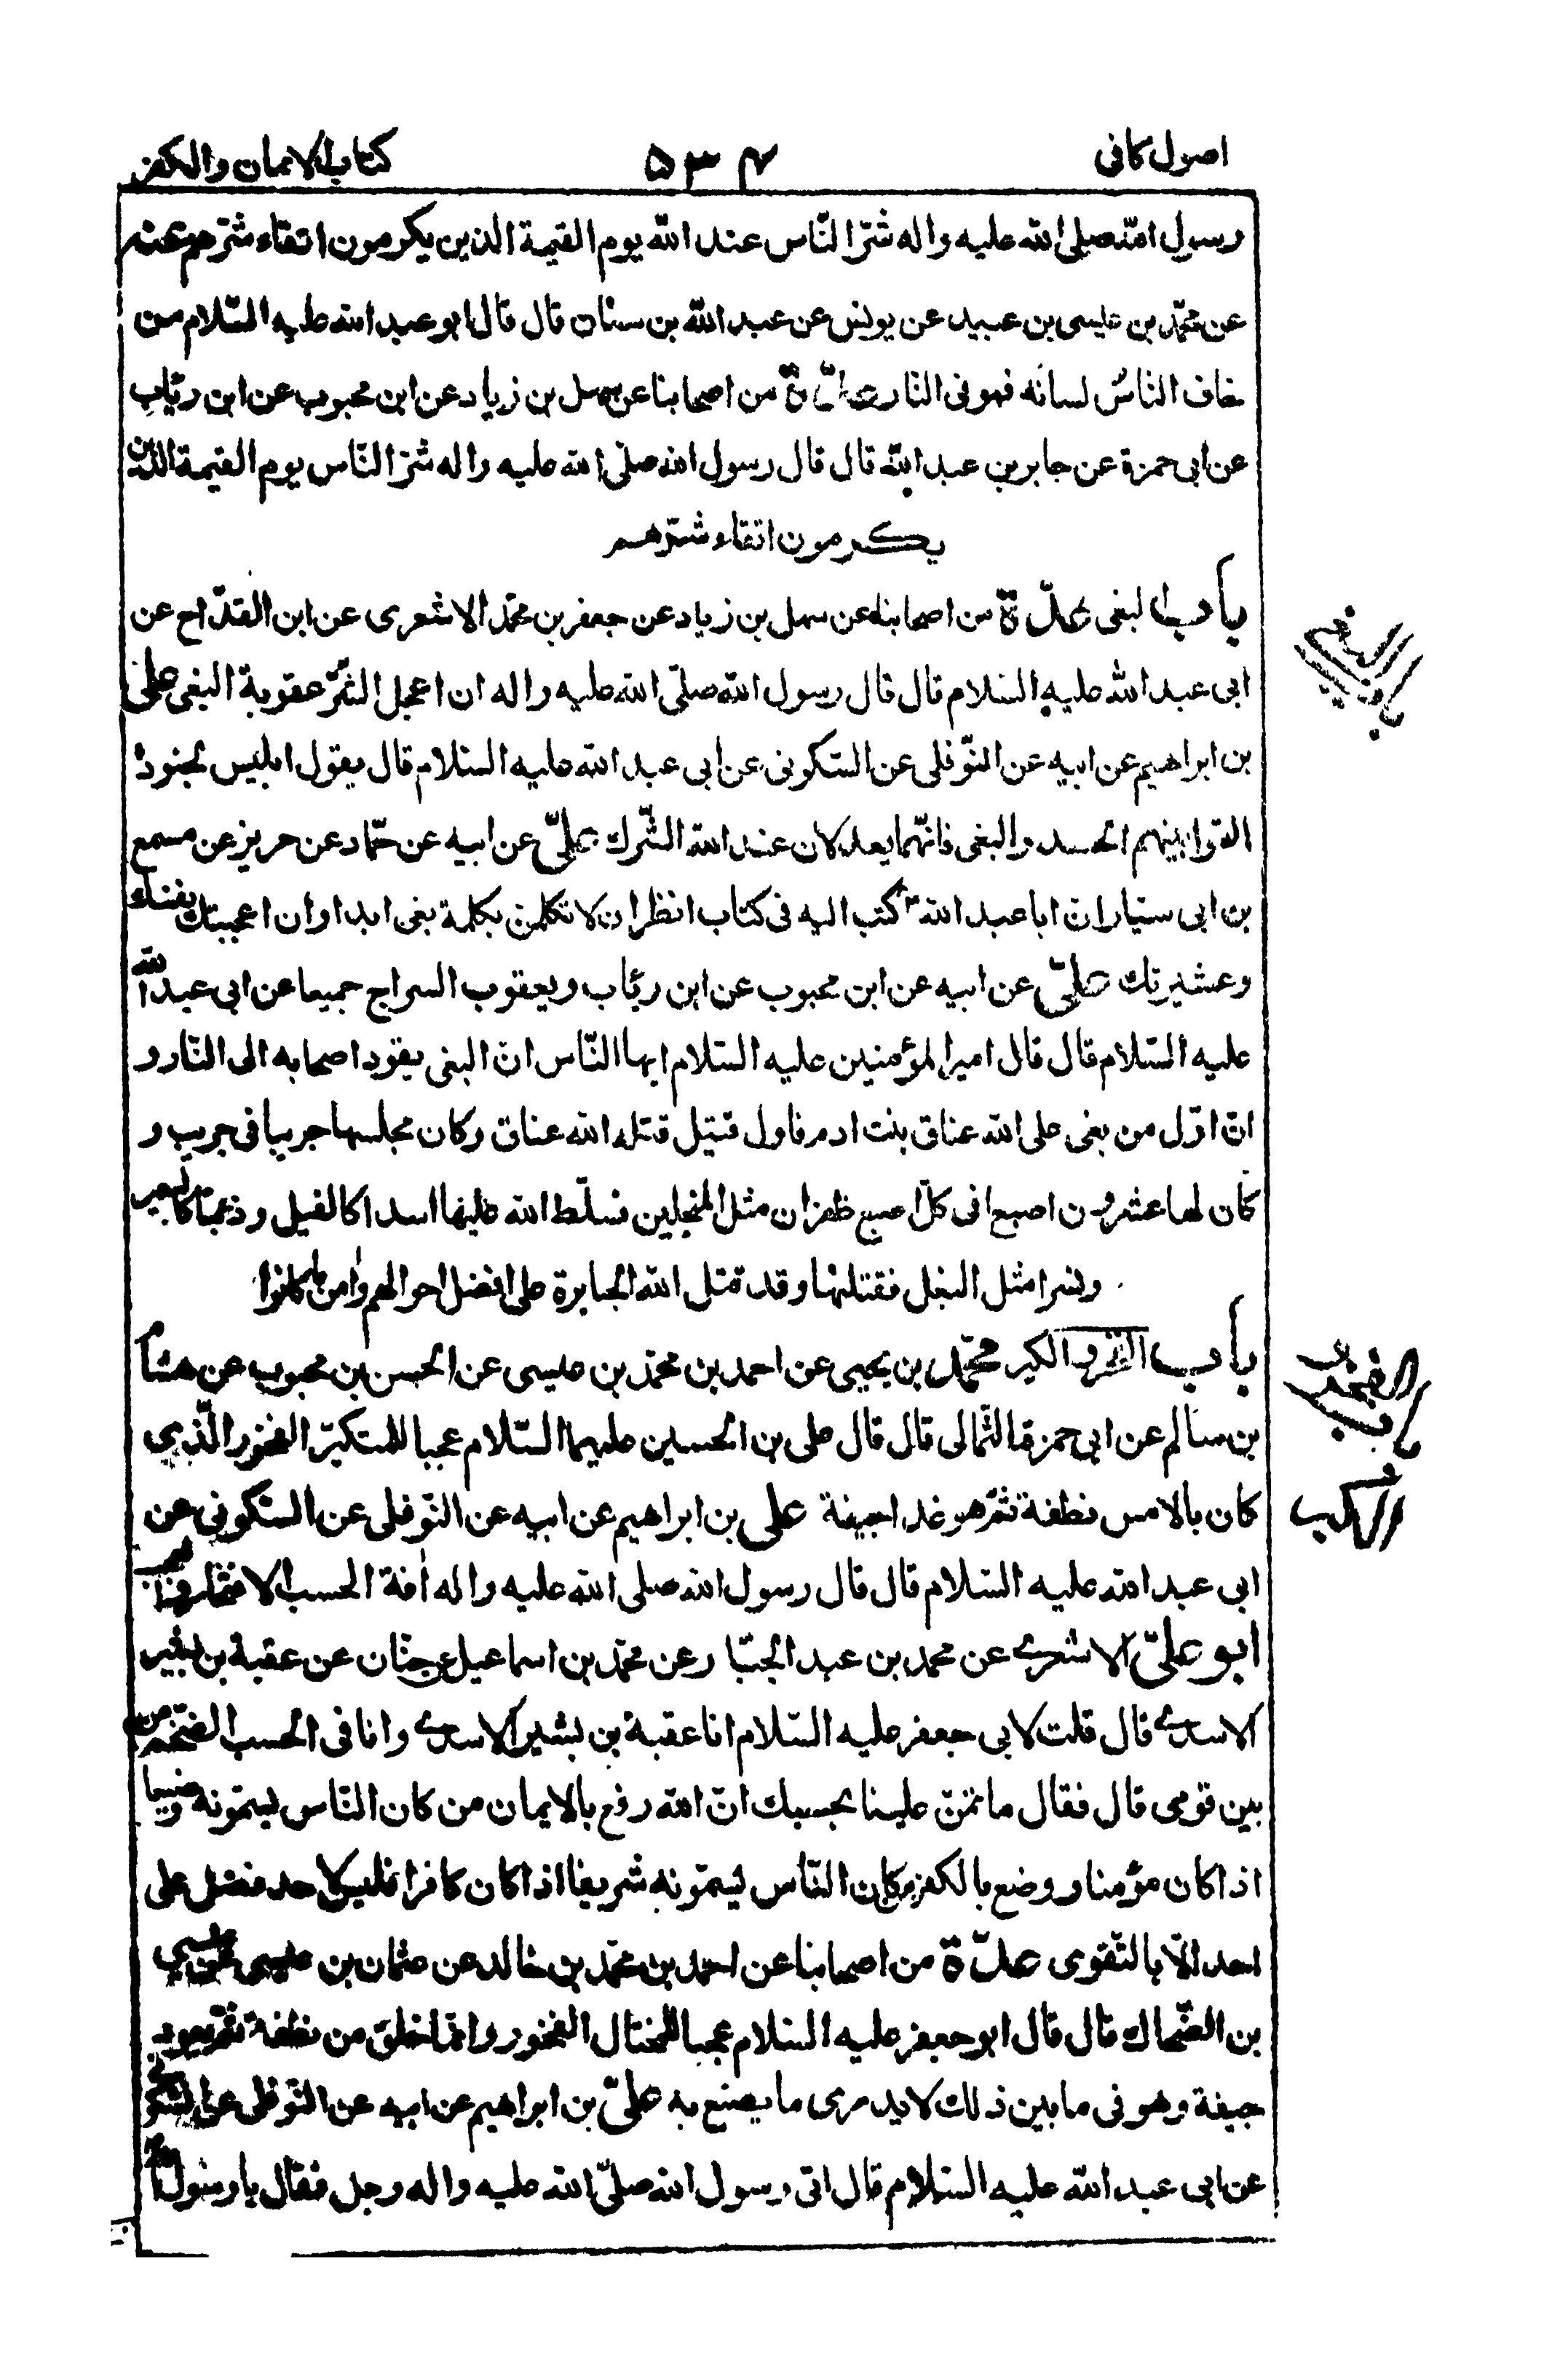 اصول كافى
۵۳۴
كتاب الايمان والكفر
رسول الله صلى الله عليه واله شرّ النّاس عند الله يوم القيمة الذين يكرمون اتقاء شرّهم عنه
عن محمّد بن عيسى بن عبيد عن يونس عن عبد الله بن سنان قال قال ابو عبد الله عليه السّلام من
خاف الناسُ لسانه فهو فى النار عدّة من اصحابنا عن سهل بن زياد عن ابن محبوب عن ابن رئاب
عن ابى حمزة عن جابر بن عبد الله قال قال رسول الله صلّى الله عليه واله شرّ النّاس يوم القيمة الذين
يكرمون اتقاء شرّهم
باب البغى عدّة من اصحابنا عن سهل بن زياد عن جعفر بن محمّد الاشعرى عن ابن القدّاح عن
ابى عبد الله عليه السلام قال قال رسول الله صلّى الله عليه واله ان اعجل الشّرّ عقوبة البغى على
بن ابراهيم عن ابيه عن النّوفلى عن السّكونى عن ابى عبد الله عليه السلام قال يقول ابليس لجنوده
القوا بينهم الحسد والبغى فانّهما يعدلان عند الله الشّرك علىّ عن ابيه عن حمّاد عن حريز عن مسمع
بن ابى سيّار ان ابا عبد الله كتب اليه فى كتاب انظر ان لا تكلمن بكلمة بغى ابدا وان اعجبتك نفسك
وعشيرتك علىّ عن ابيه عن ابن محبوب عن ابن رئاب ويعقوب السراج جميعا عن ابى عبد الله
عليه السّلام قال قال امير المؤمنين عليه السّلام ايها النّاس انّ البغى يقود اصحابه الى النّار و
انّ اوّل من بغى على الله عناق بنت ادم فاول قتيل قتله الله عناق وكان مجلسها جريبا فى جريب و
كان لها عشرون اصبعا فى كلّ اصبع ظفران مثل المنجلين فسلّط الله عليها اسدا كالفيل وذئبا كالبعير
ونسرا مثل البغل فقتلنها وقد قتل الله الجبابرة على افضل احوالهم وامن ما كانوا
باب الفخر والكبر محمّد بن يحيى عن احمد بن محمّد بن عيسى عن الحسن بن محبوب عن هشام
بن سالم عن ابى حمزة الثّمالى قال قال على بن الحسين عليهما السّلام عجبا للمتكبّر الفخور الّذى
كان بالامس نطفة ثمّ هو غدا جيفة على بن ابراهيم عن ابيه عن النّوفلى عن السّكونى عن
ابى عبد الله عليه السلام قال قال رسول الله صلى الله عليه واله افة الحسب الافتخار والعجب
ابو علىّ الاشعرى عن محمد بن عبد الجبّار عن محمّد بن اسماعيل عن حنّان عن عقبة بن بشير
الاسدى قال قلت لابى جعفر عليه السّلام انا عقبة بن بشير الاسدى وانا فى الحسب الضخم من
بين قومى قال فقال ما تمنّ علينا بحسبك انّ الله رفع بالايمان من كان النّاس يسمّونه وضيعا
اذا كان مؤمنا ووضع بالكفر من كان النّاس يسمّونه شريفا اذا كان كافرا فليس لاحد فضل على
احد الّا بالتّقوى عدّة من اصحابنا عن احمد بن محمّد بن خالد عن عثمان بن عيسى عن عيسى
بن الضّحاك قال قال ابو جعفر عليه السلام عجبا للمختال الفخور وانّما خلق من نطفة ثمّ يعود
جيفة وهو فى ما بين ذلك لا يدرى ما يصنع به علىّ بن ابراهيم عن ابيه عن النّوفلى عن السّكونى
عن ابى عبد الله عليه السّلام قال اتى رسول الله صلّى الله عليه واله رجل فقال يا رسول الله
باب البغى
باب الفخر
والكبر